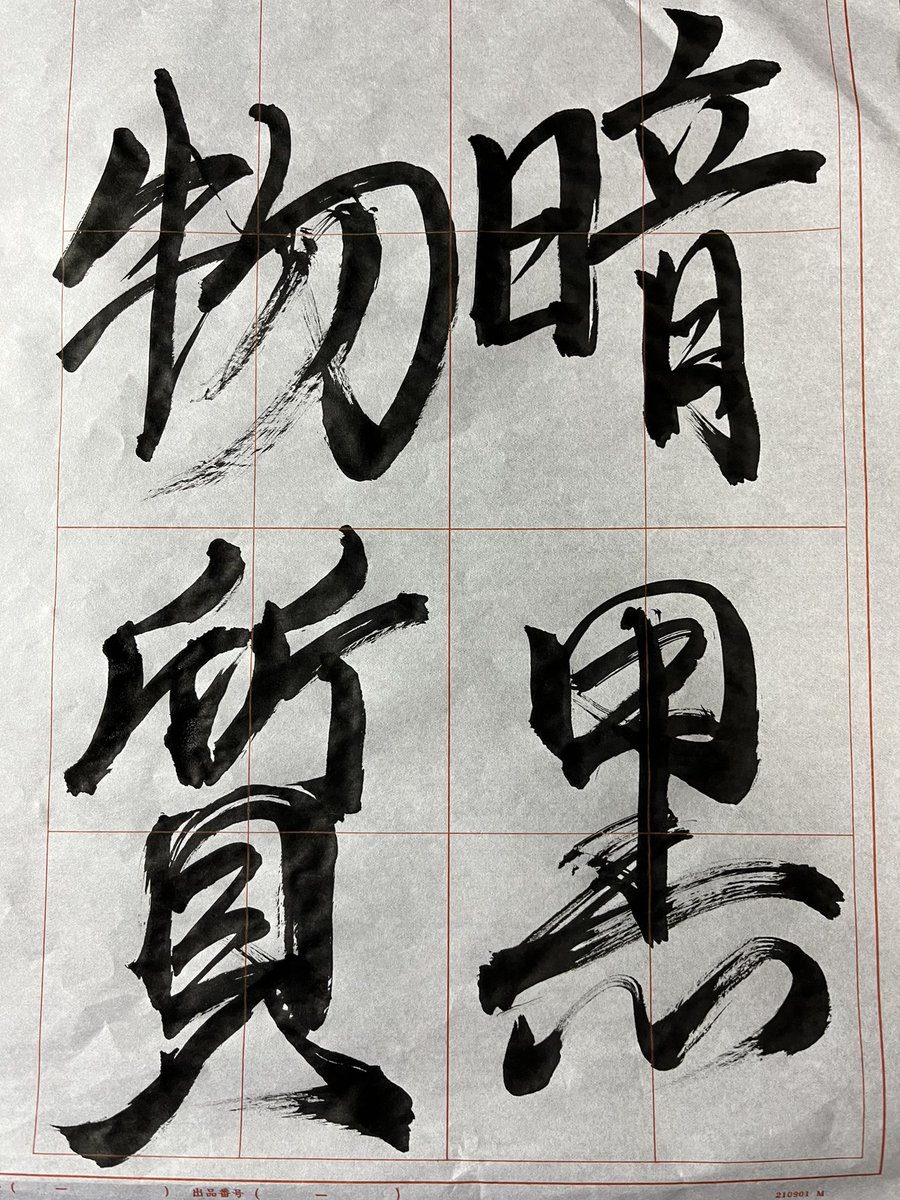 暗黒
物質
( 一 ) 出品番号 ( 一 ) 210901 M